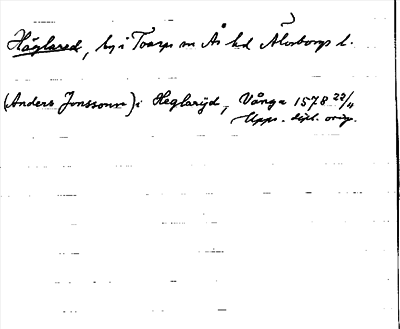 Häglared, by i Toarps sn Ås hd Älvsborgs l.
(Anders Jonssonn) i Heglaryd, Vånga 1578 22/11
Upps. dipl. orig.